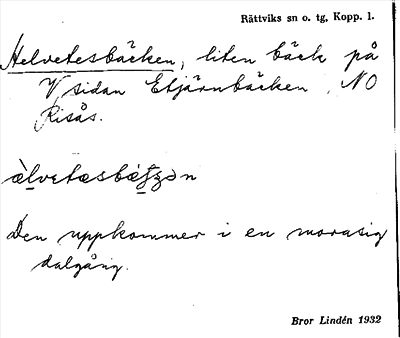 Rättviks sn o. tg, Kopp. l.
Helvetesbäcken, liten bäck på
V sidan Etjärnbäcken, NO
Risås.
Den uppkommer i en morasig
dalgång.
Bror Lindén 1932